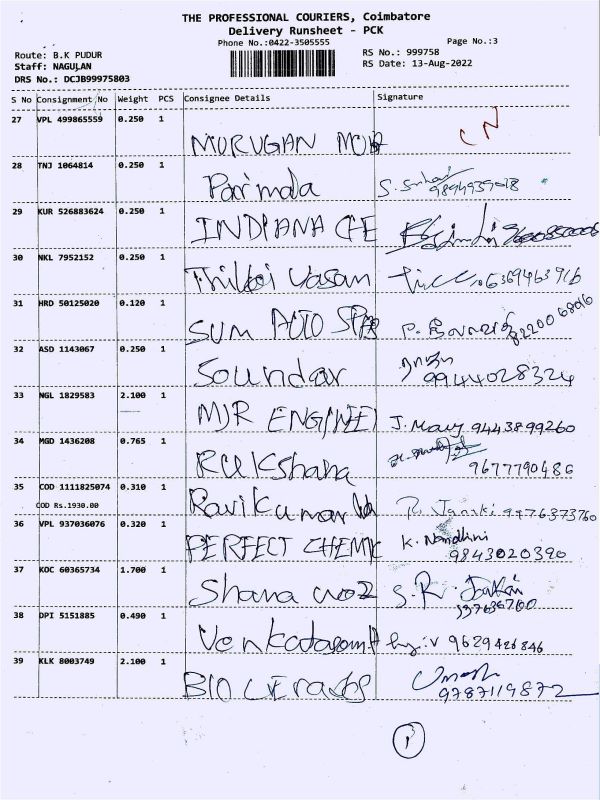 THE PROFESSIONAL COURIERS, Coimbatore
Delivery Runsheet - PCK
Phone No.:0422-3505555
Page No.:3
Route: B.K PUDUR
RS No.: 999758
Staff: NAGULAN
RS Date: 13-Aug-2022
DRS No.: DCJB99975803
S No Consignment No Weight PCS Consignee Details Signature
27 VPL 499865559 0.250 1
MURUGAN CN
28 TNJ 1064814 0.250 1
Parimala S.
29 KUR 526883624 0.250 1
INDIANA CHE
30 NKL 7952152 0.250 1
Vasan 6369463916
31 HRD 50125020 0.120 1
SUM AUTO P.
32 ASD 1143067 0.250 1
Soundar 9944028324
33 NGL 1829583 2.100 1
MJR ENGINEE J. Mary 9443899260
34 MGD 1436208 0.765 1
Rukshana 9677790486
35 COD 1111825074 0.310 1
COD Rs.1930.00
Ravikumar R. Janaki 9976373760
36 VPL 937036076 0.320 1
PERFECT CHEMIC K. Nandhini
9843020390
37 KOC 60365734 1.700 1
Shana S.R.
38 DPI 5151885 0.490 1
9629426846
39 KLK 8003749 2.100 1
BIO Umesh
9787119872
1